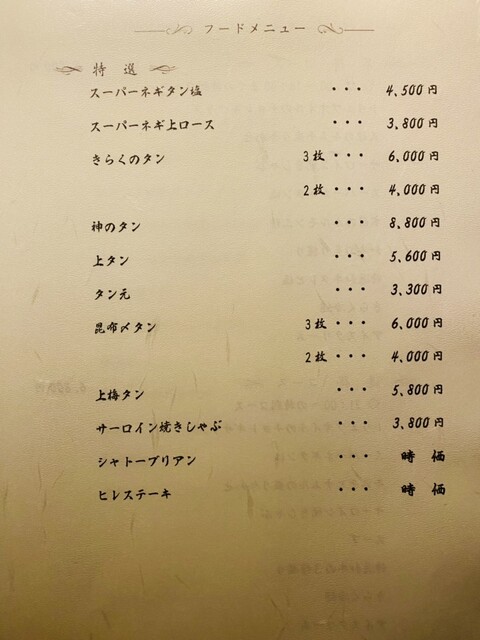 フードメニュー
特選
スーパーネギタン塩 ・・・ 4,500円
スーパーネギ上ロース ・・・ 3,800円
きらくのタン 3枚・・・ 6,000円
2枚・・・ 4,000円
神のタン ・・・ 8,800円
上タン ・・・ 5,600円
タン元 ・・・ 3,300円
昆布〆タン 3枚・・・ 6,000円
2枚・・・ 4,000円
上梅タン ・・・ 5,800円
サーロイン焼きしゃぶ ・・・ 3,800円
シャトーブリアン ・・・ 時価
ヒレステーキ ・・・ 時価